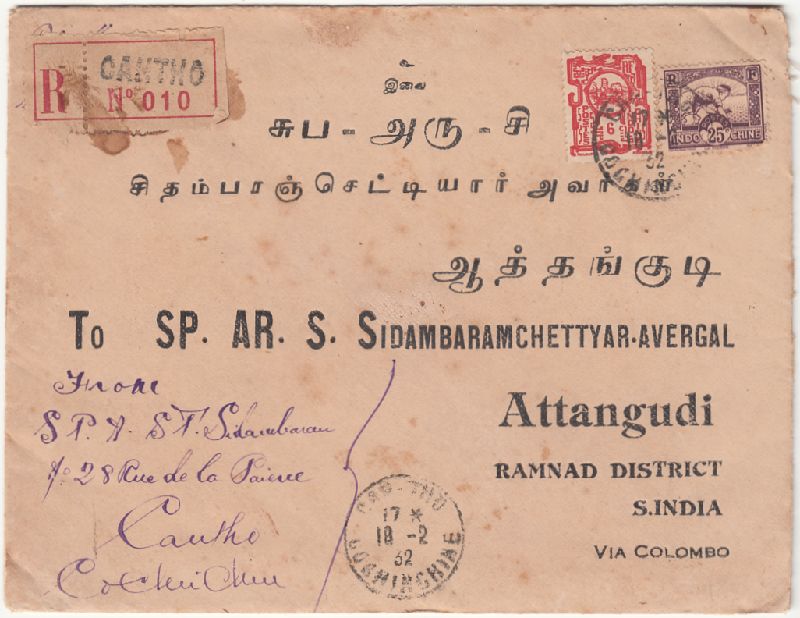 R CANTHO
Nº 010
இலை
சுப - அரு - சி
சிதம்பரஞ்செட்டியார் அவர்கள்
ஆத்தங்குடி
TO SP. AR. S. SIDAMBARAMCHETTYAR-AVERGAL
Attangudi
RAMNAD DISTRICT
S.INDIA
VIA COLOMBO
From
S P. A. S T. Sidambaram
Nº 28 Rue de la
Cantho
Cochichin
CAN-THO
17 *
18 -2
32
COCHINCHINE
6
R F
INDO 25 CHINE
17 *
18
32
COCHINCHINE